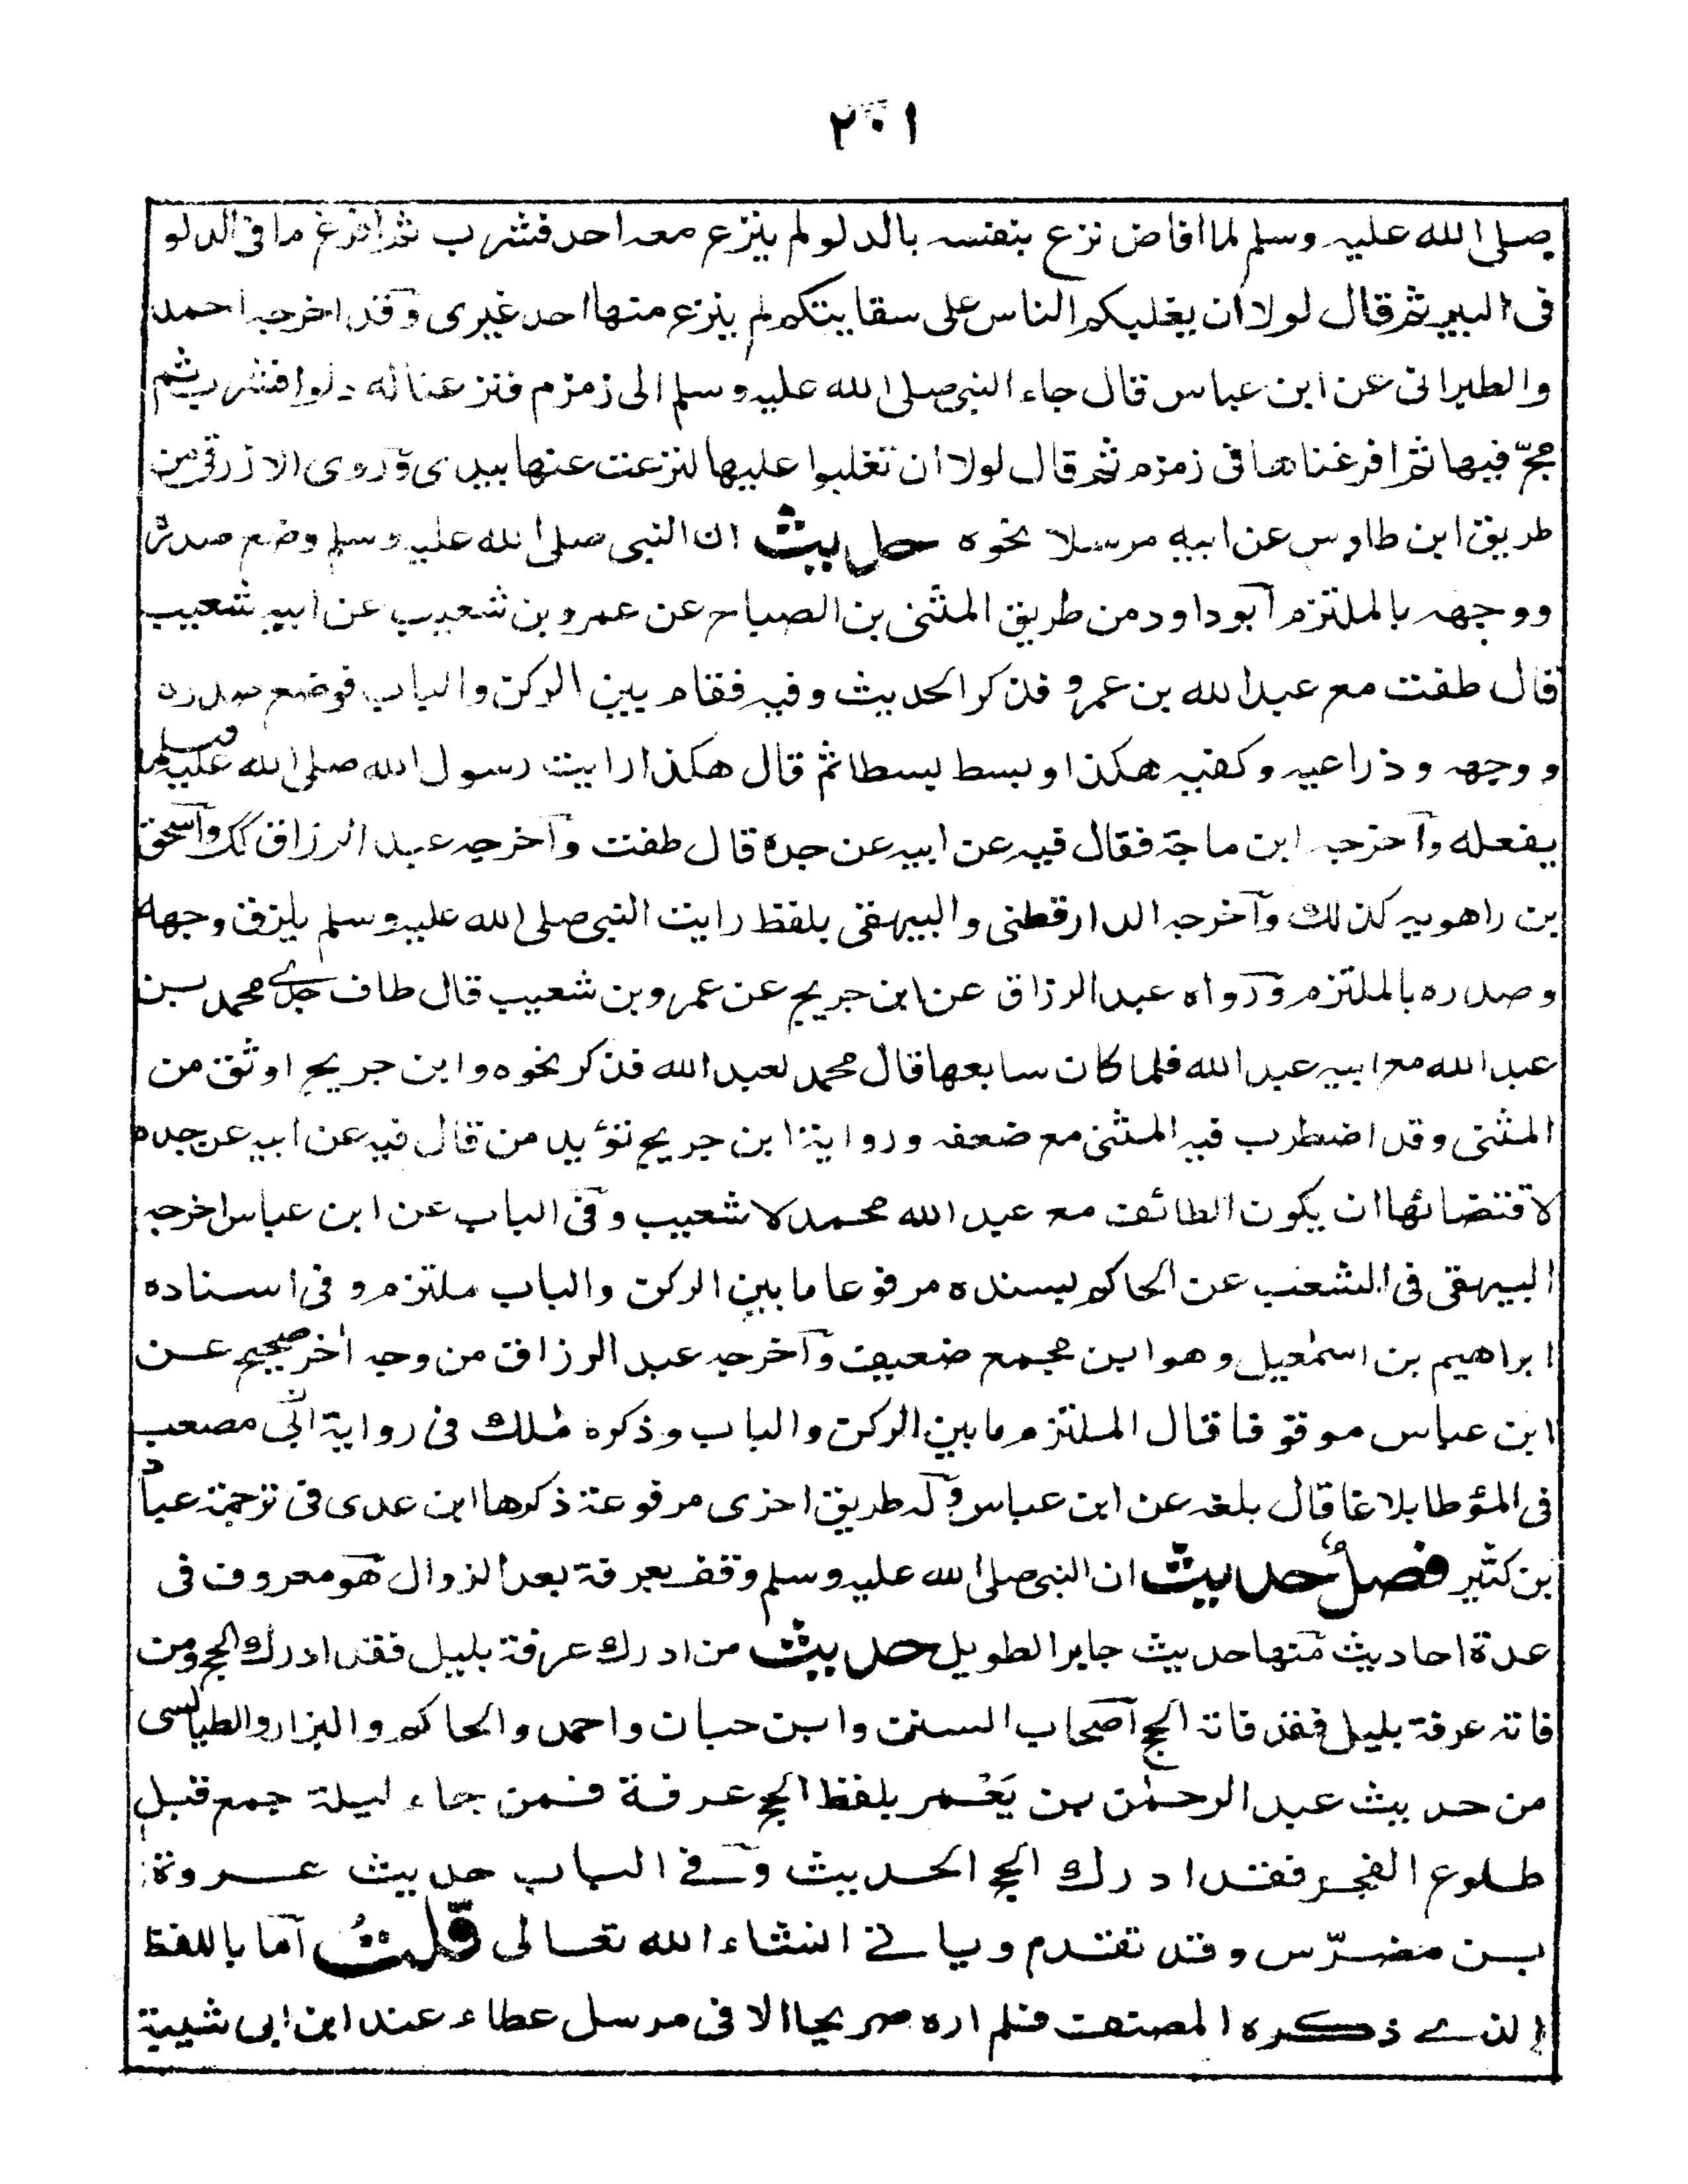 ٢٠١
صلى الله عليه وسلم لما افاض نزع بنفسه بالدلو لم ينزع معه احد فشرب ثم افرغ ما فى الدلو
فى البير ثم قال لولا ان يغلبكم الناس على سقايتكم لم ينزع منها احد غيرى وقد اخرجه احمد
والطبرانى عن ابن عباس قال جاء النبى صلى الله عليه وسلم الى زمزم فنزعنا له دلوا فشرب ثم
مجّ فيها ثم افرغناها فى زمزم ثم قال لولا ان تغلبوا عليها لنزعت عنها بيدى وروى الازرقى من
طريق ابن طاوس عن ابيه مرسلا نحوه حديث ان النبى صلى الله عليه وسلم وضع صدره
ووجهه بالملتزم ابو داود من طريق المثنى بن الصباح عن عمرو بن شعيب عن ابيه شعيب
قال طفت مع عبد الله بن عمرو فذكر الحديث وفيه فقام بين الركن والباب فوضع صدره
ووجهه وذراعيه وكفيه هكذا وبسط بسطا ثم قال هكذا رايت رسول الله صلى الله عليه وسلم
يفعله واخرجه ابن ماجة فقال فيه عن ابيه عن جده قال طفت واخرجه عبد الرزاق واسحق
بن راهويه كذلك واخرجه الدارقطنى والبيهقى بلفظ رايت النبى صلى الله عليه وسلم يلزق وجهه
وصدره بالملتزم ورواه عبد الرزاق عن ابن جريج عن عمرو بن شعيب قال طاف جدے محمد بن
عبد الله مع ابيه عبد الله فلما كان سابعها قال محمد لعبد الله فذكر نحوه وابن جريج اوثق من
المثنى وقد اضطرب فيه المثنى مع ضعفه ورواية ابن جريج تؤيد من قال فيه عن ابيه عن جده
لاقتضائها ان يكون الطائف مع عبد الله محمد لا شعيب وفى الباب عن ابن عباس اخرجه
البيهقى فى الشعب عن الحاكم بسنده مرفوعا ما بين الركن والباب ملتزم وفى اسناده
ابراهيم بن اسمٰعيل وهو ابن مجمع ضعيف واخرجه عبد الرزاق من وجه اٰخر صحيح عن
ابن عباس موقوفا قال الملتزم ما بين الركن والباب وذكره مٰلك فى رواية ابى مصعب
فى المؤطا بلاغا قال بلغه عن ابن عباس وله طريق اخرى مرفوعة ذكرها ابن عدى فى ترجمة عباد
بن كثير فصل حديث ان النبى صلى الله عليه وسلم وقف بعرفة بعد الزوال هو معروف فى
عدة احاديث منها حديث جابر الطويل حديث من ادرك عرفة بليل فقد ادرك الحج ومن
فاته عرفة بليل فقد فاته الحج اصحاب السنن وابن حبان واحمد والحاكم والبزار والطيالسى
من حديث عبد الرحمٰن بن يَعْمر بلفظ الحج عرفة فمن جاء ليلة جمع قبل
طلوع الفجر فقد ادرك الحج الحديث وفى الباب حديث عروة
بن مضرّس وقد تقدم وياتى انشاء الله تعالى قلتُ اما باللفظ
الذے ذكره المصنف فلم اره صريحا الا فى مرسل عطاء عند ابن ابى شيبة